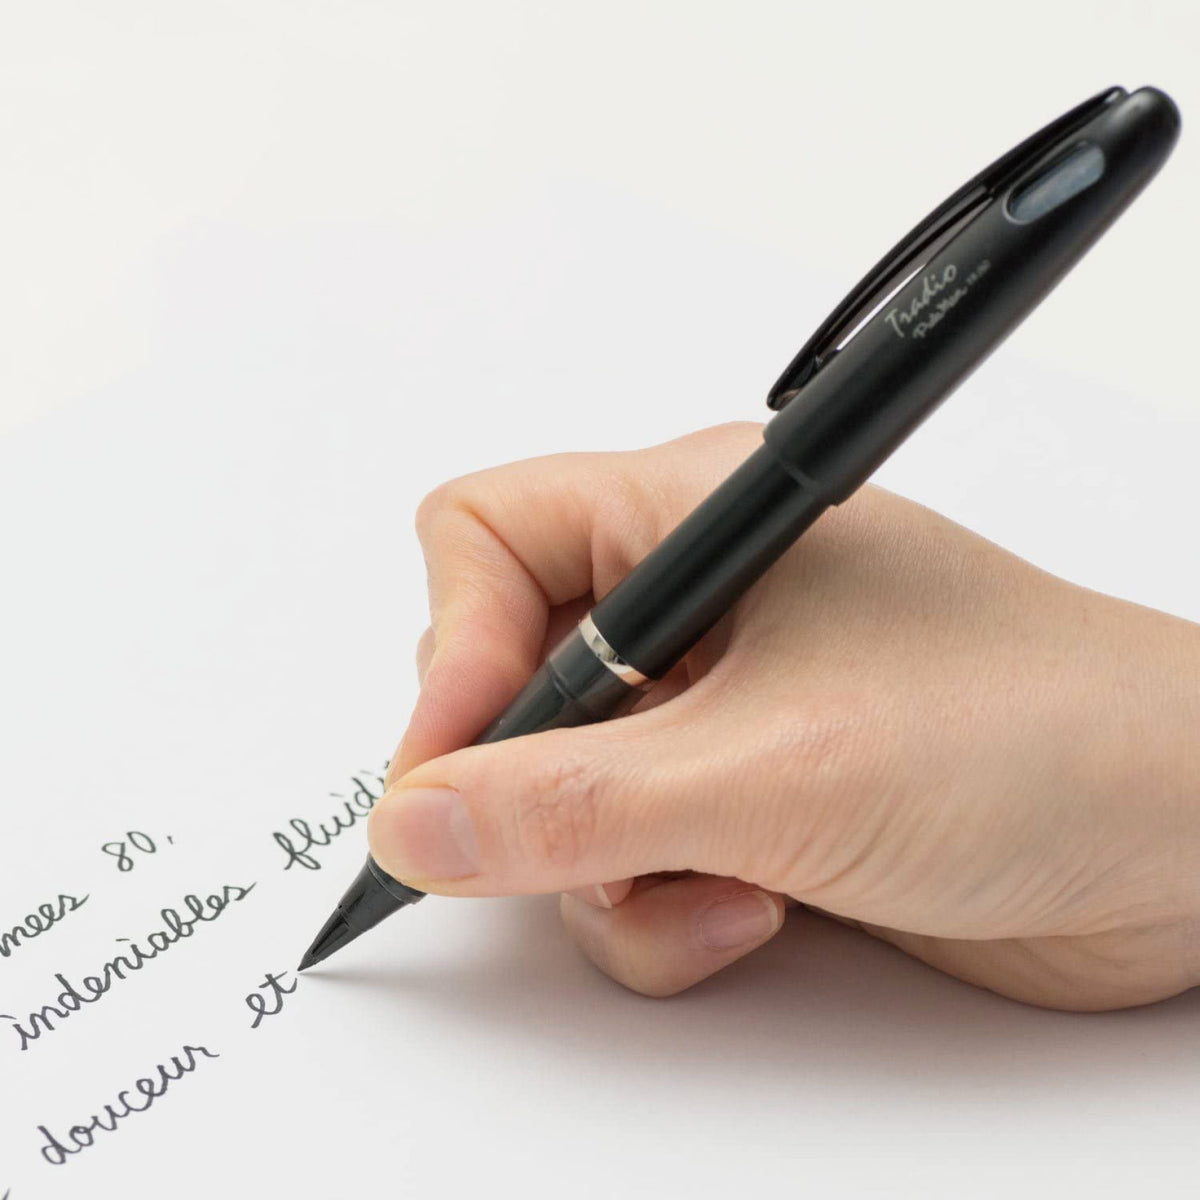 Tradio
mees 80,
indeniables fluidi
douceur et